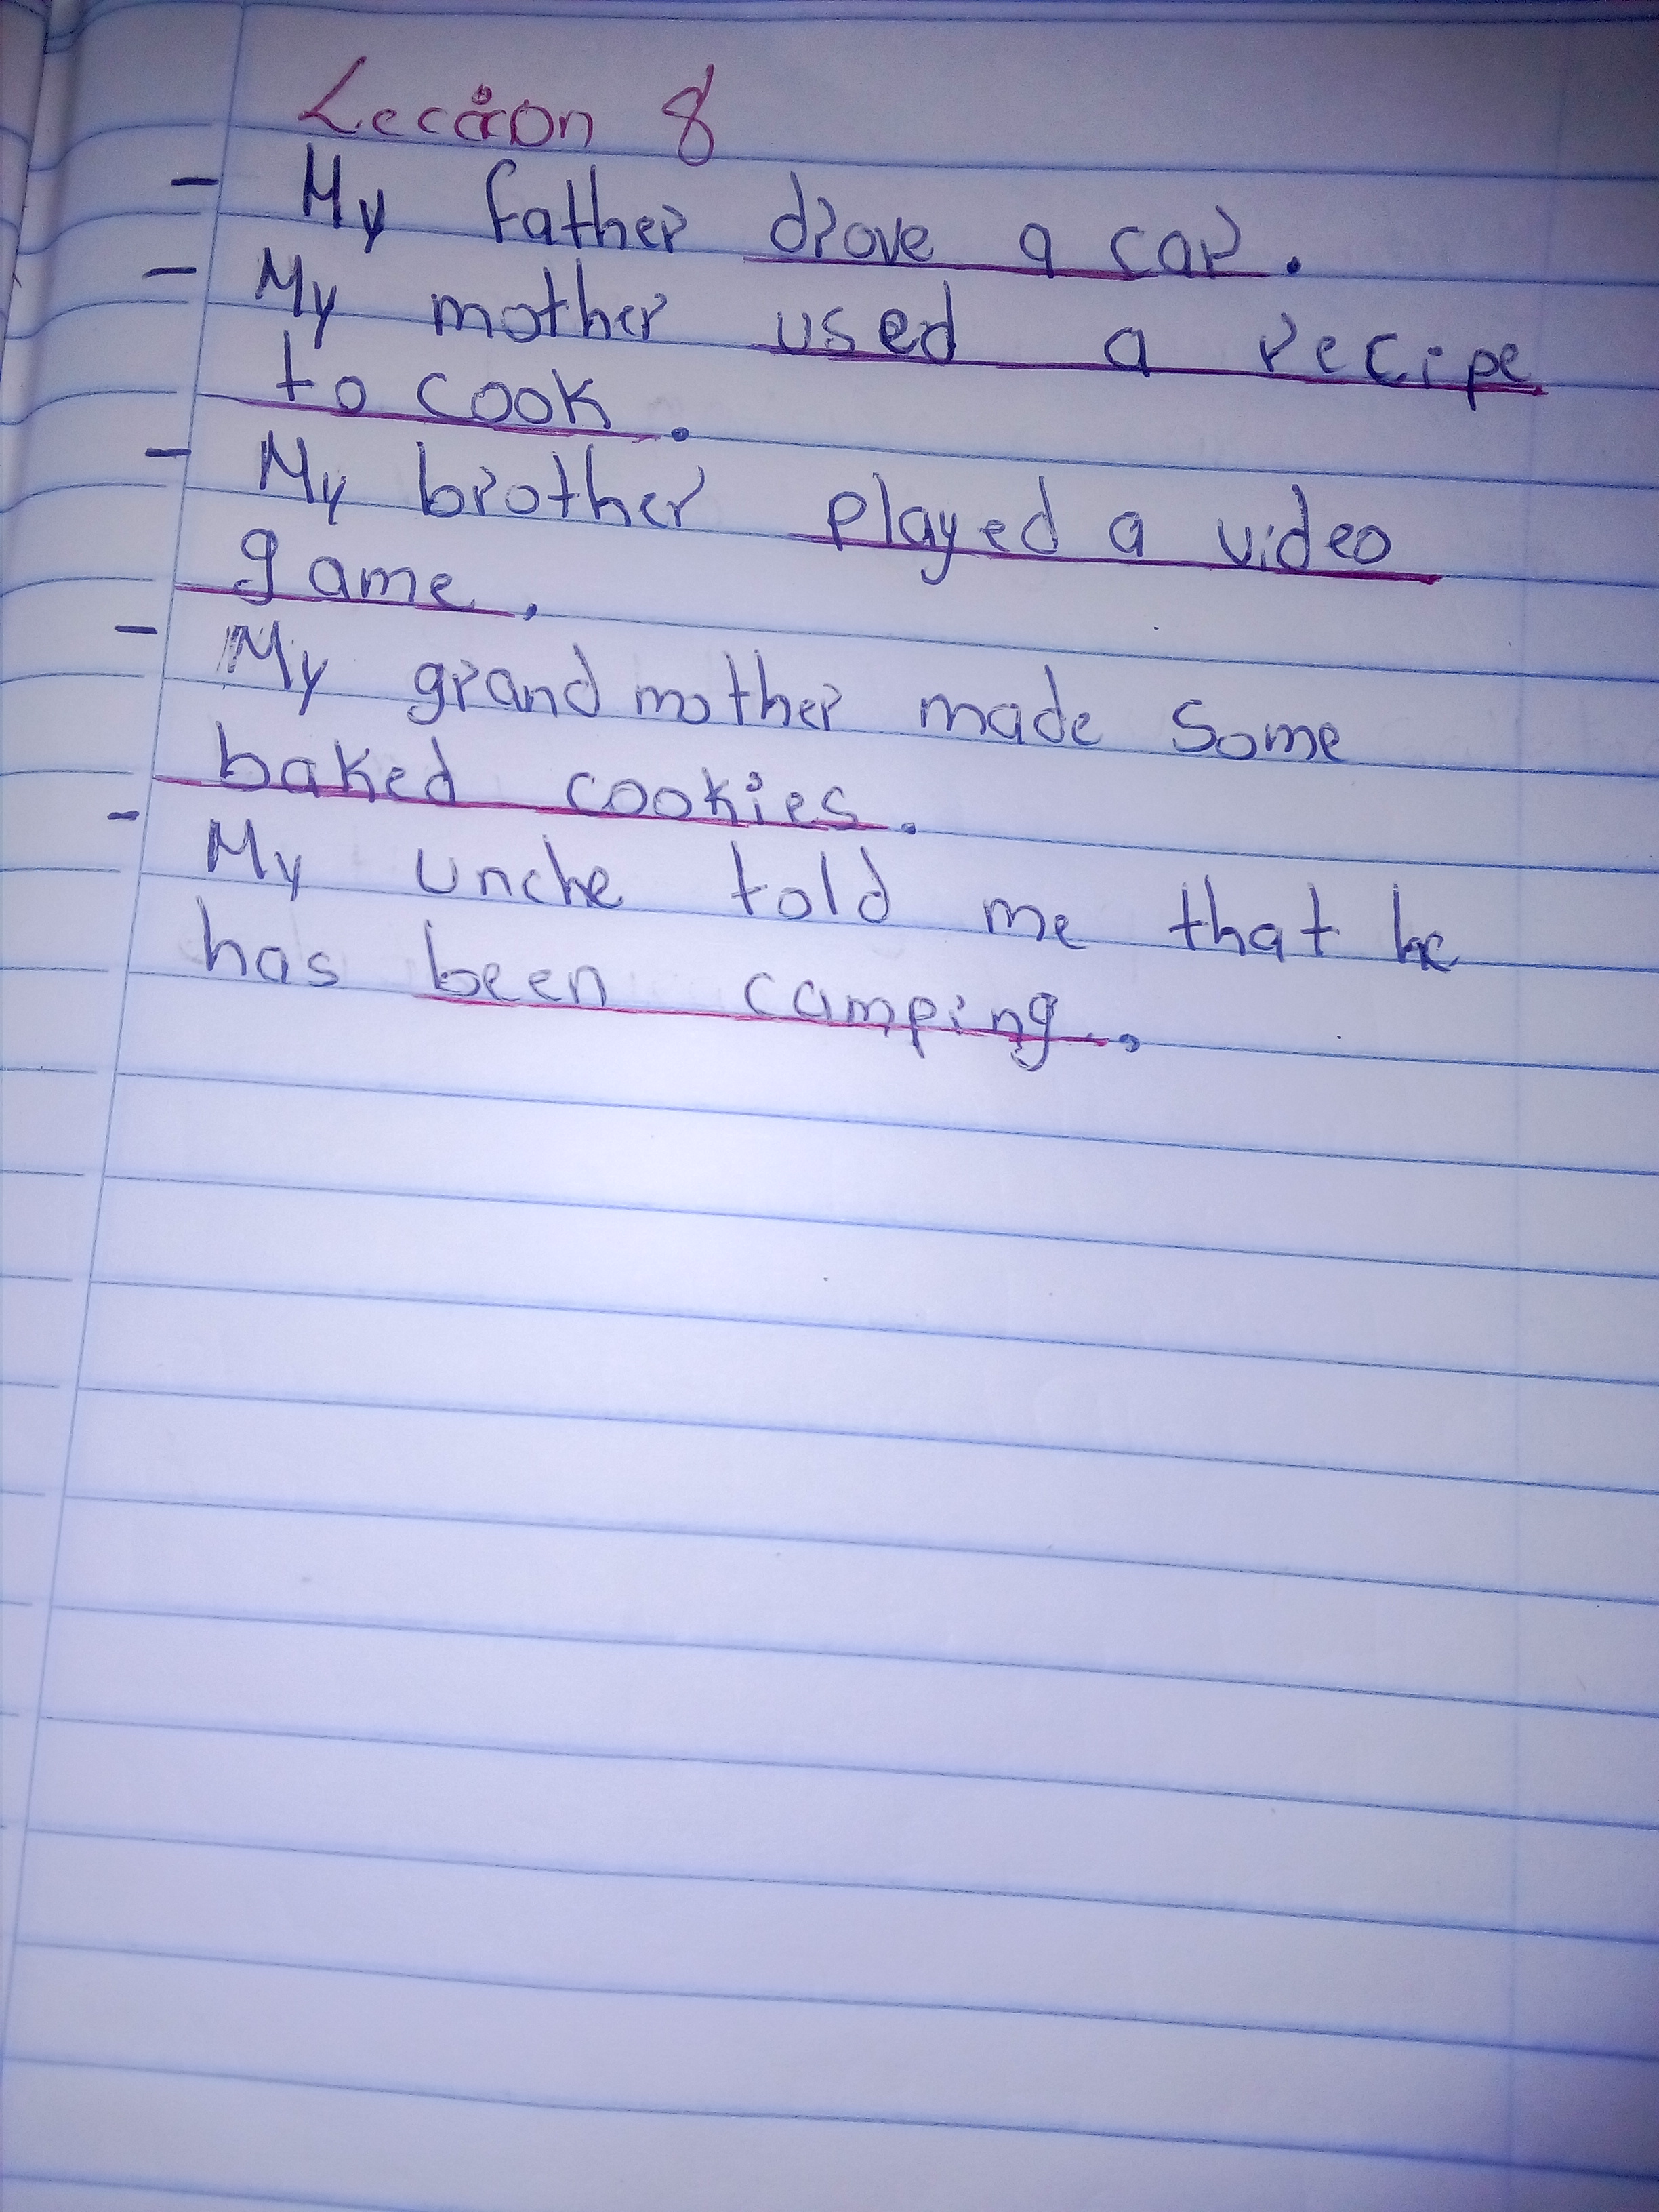 Leccion 8
- My father drove a car.
- My mother used a recipe
to cook.
- My brother played a video
game.
- My grandmother made some
baked cookies.
- My uncle told me that he
has been camping.